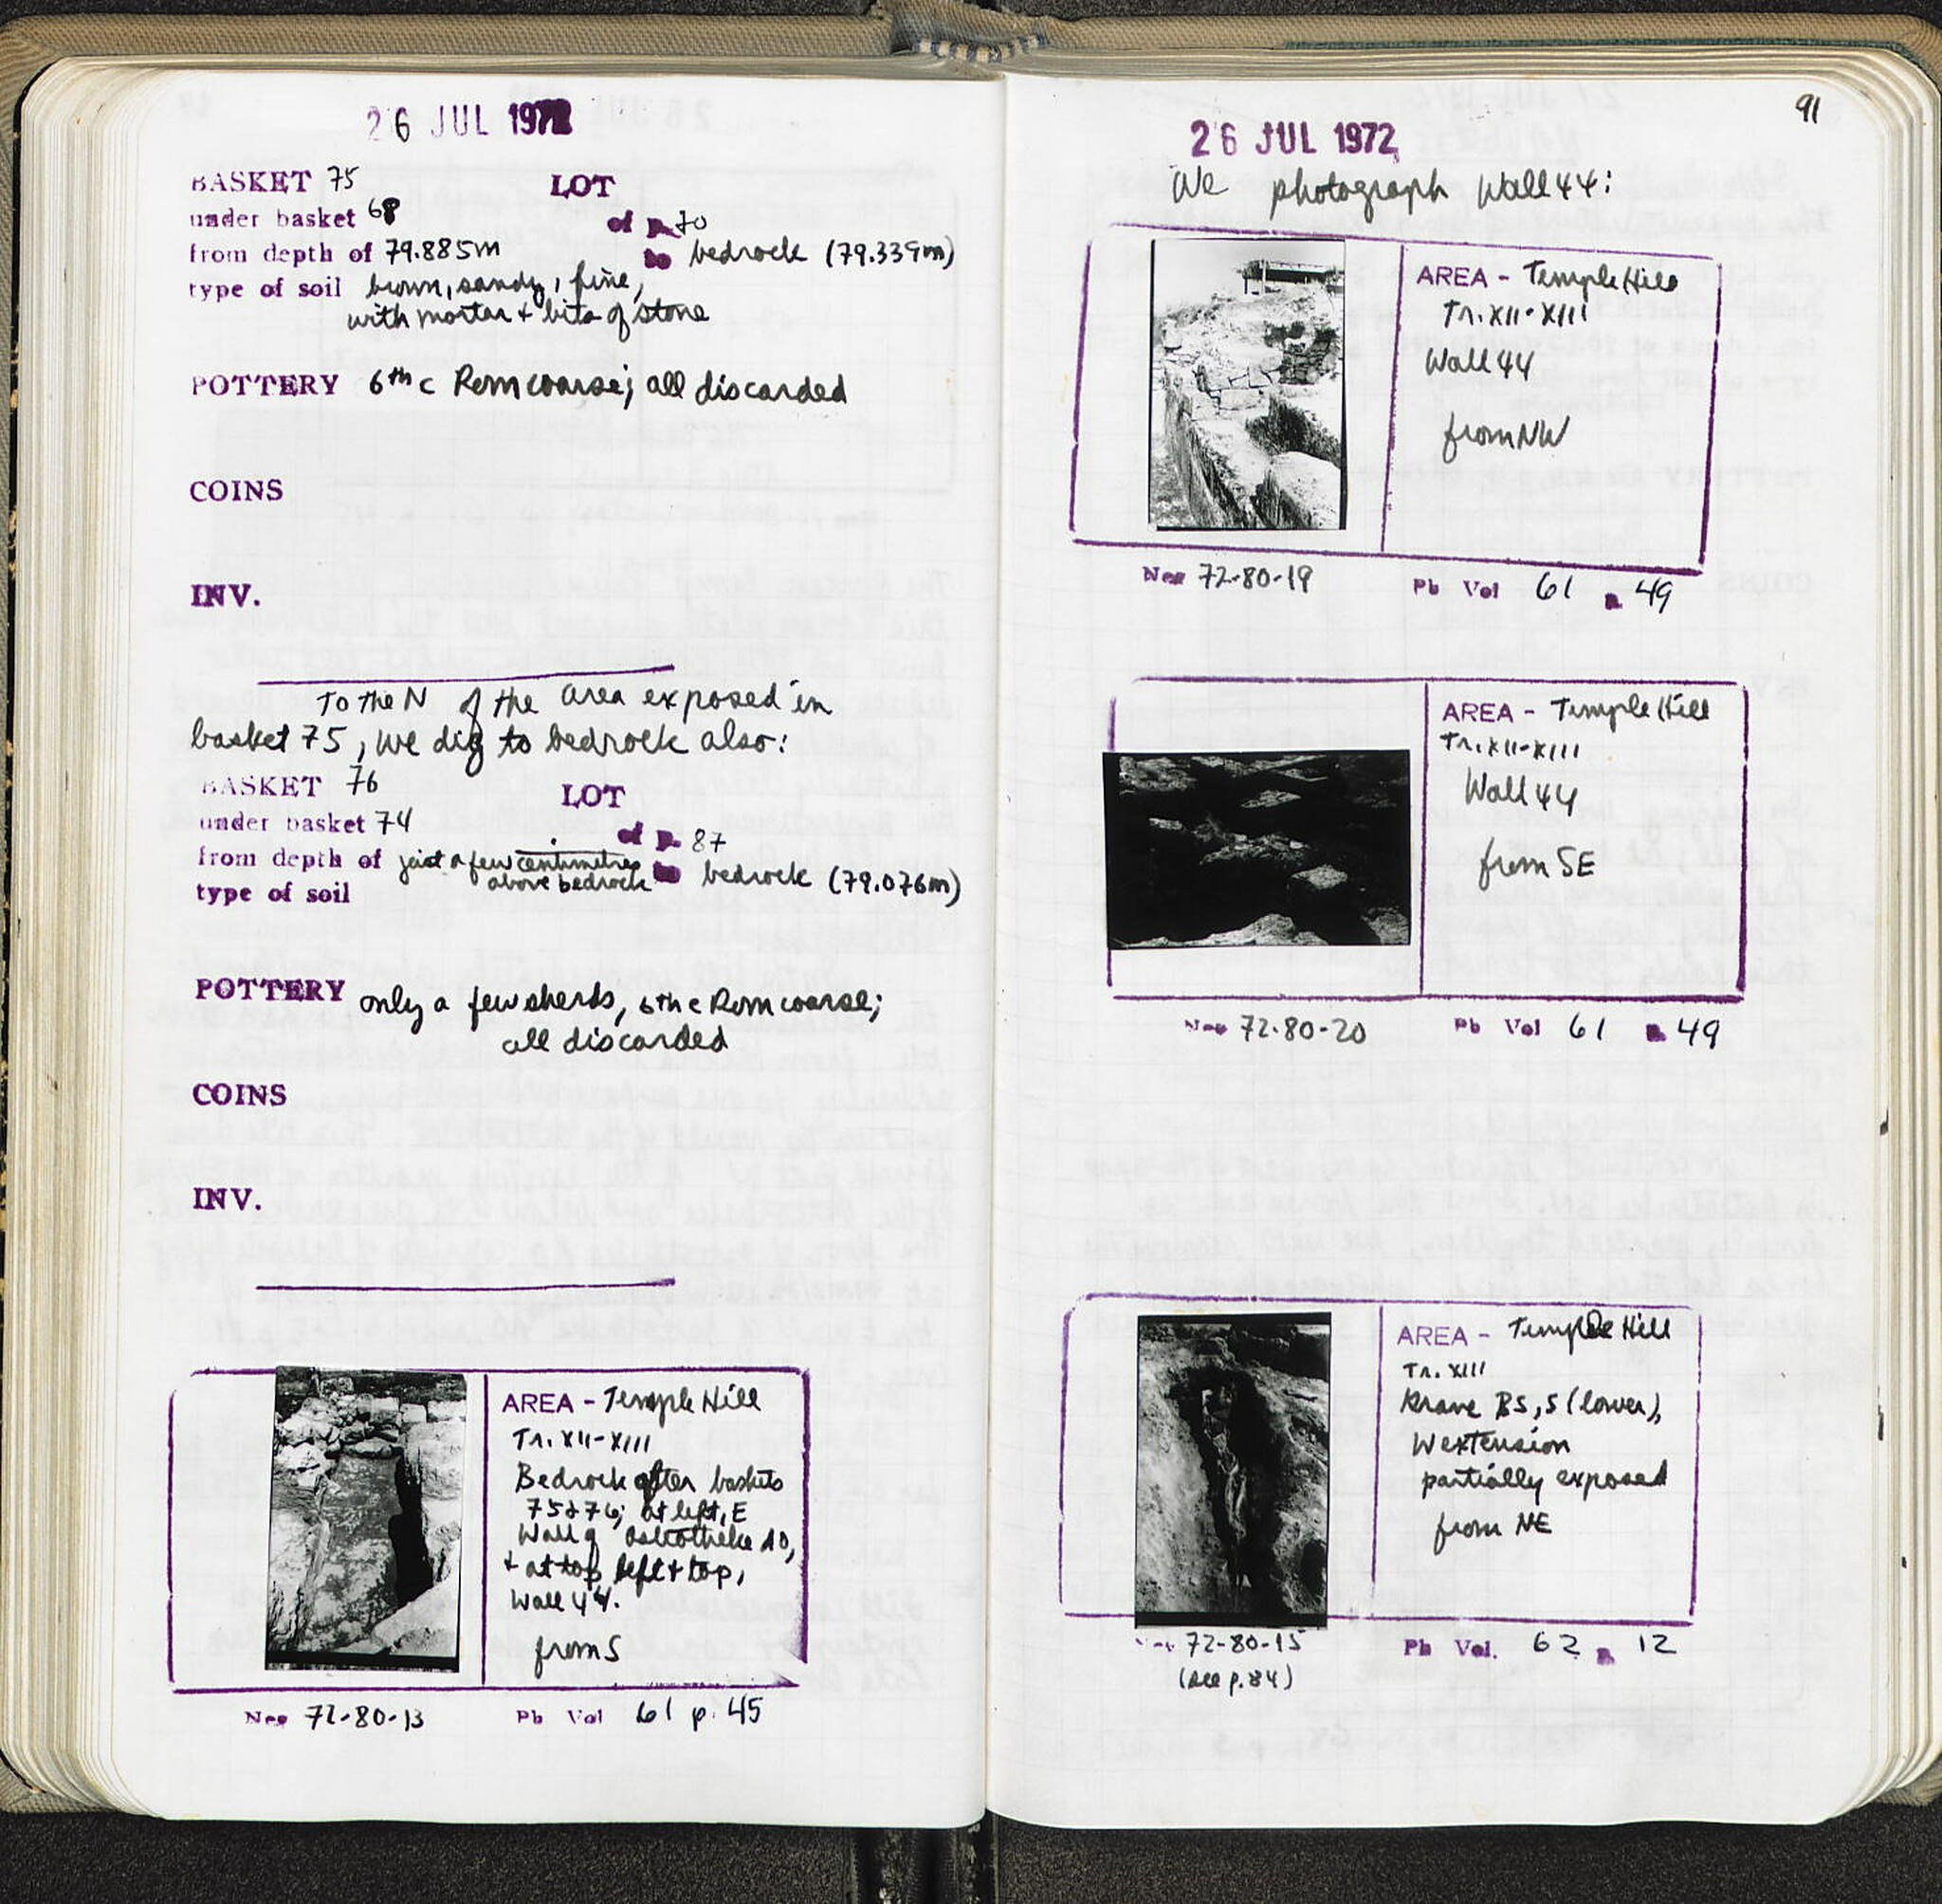 26 JUL 1972
BASKET 75 LOT
under basket 68 of p. 70
from depth of 79.885m to bedrock (79.339m)
type of soil brown, sandy, fine,
with mortar + bits of stone
POTTERY 6th c Rom coarse; all discarded
COINS
INV.
To the N of the area exposed in
basket 75, we dig to bedrock also:
BASKET 76 LOT
under basket 74 of p. 87
from depth of just a few centimetres to bedrock (79.076m)
above bedrock
type of soil
POTTERY only a few sherds, 6th c Rom coarse;
all discarded
COINS
INV.
AREA - Temple Hill
Tr. XII-XIII
Bedrock after baskets
75 & 76; at left, E
Wall of Osteotheke 10,
+ at top left + top,
Wall 44.
from S
Neg 72-80-13 Pb Vol 61 p. 45
91
26 JUL 1972
We photograph Wall 44:
AREA - Temple Hill
Tr. XII-XIII
Wall 44
from NW
Neg 72-80-19 Pb Vol 61 p. 49
AREA - Temple Hill
Tr. XII-XIII
Wall 44
from SE
Neg 72-80-20 Pb Vol 61 p. 49
AREA - Temple Hill
Tr. XIII
Grave BS, S (lower),
W extension
partially exposed
from NE
Neg 72-80-15 Pb Vol. 62 p. 12
(see p. 84)